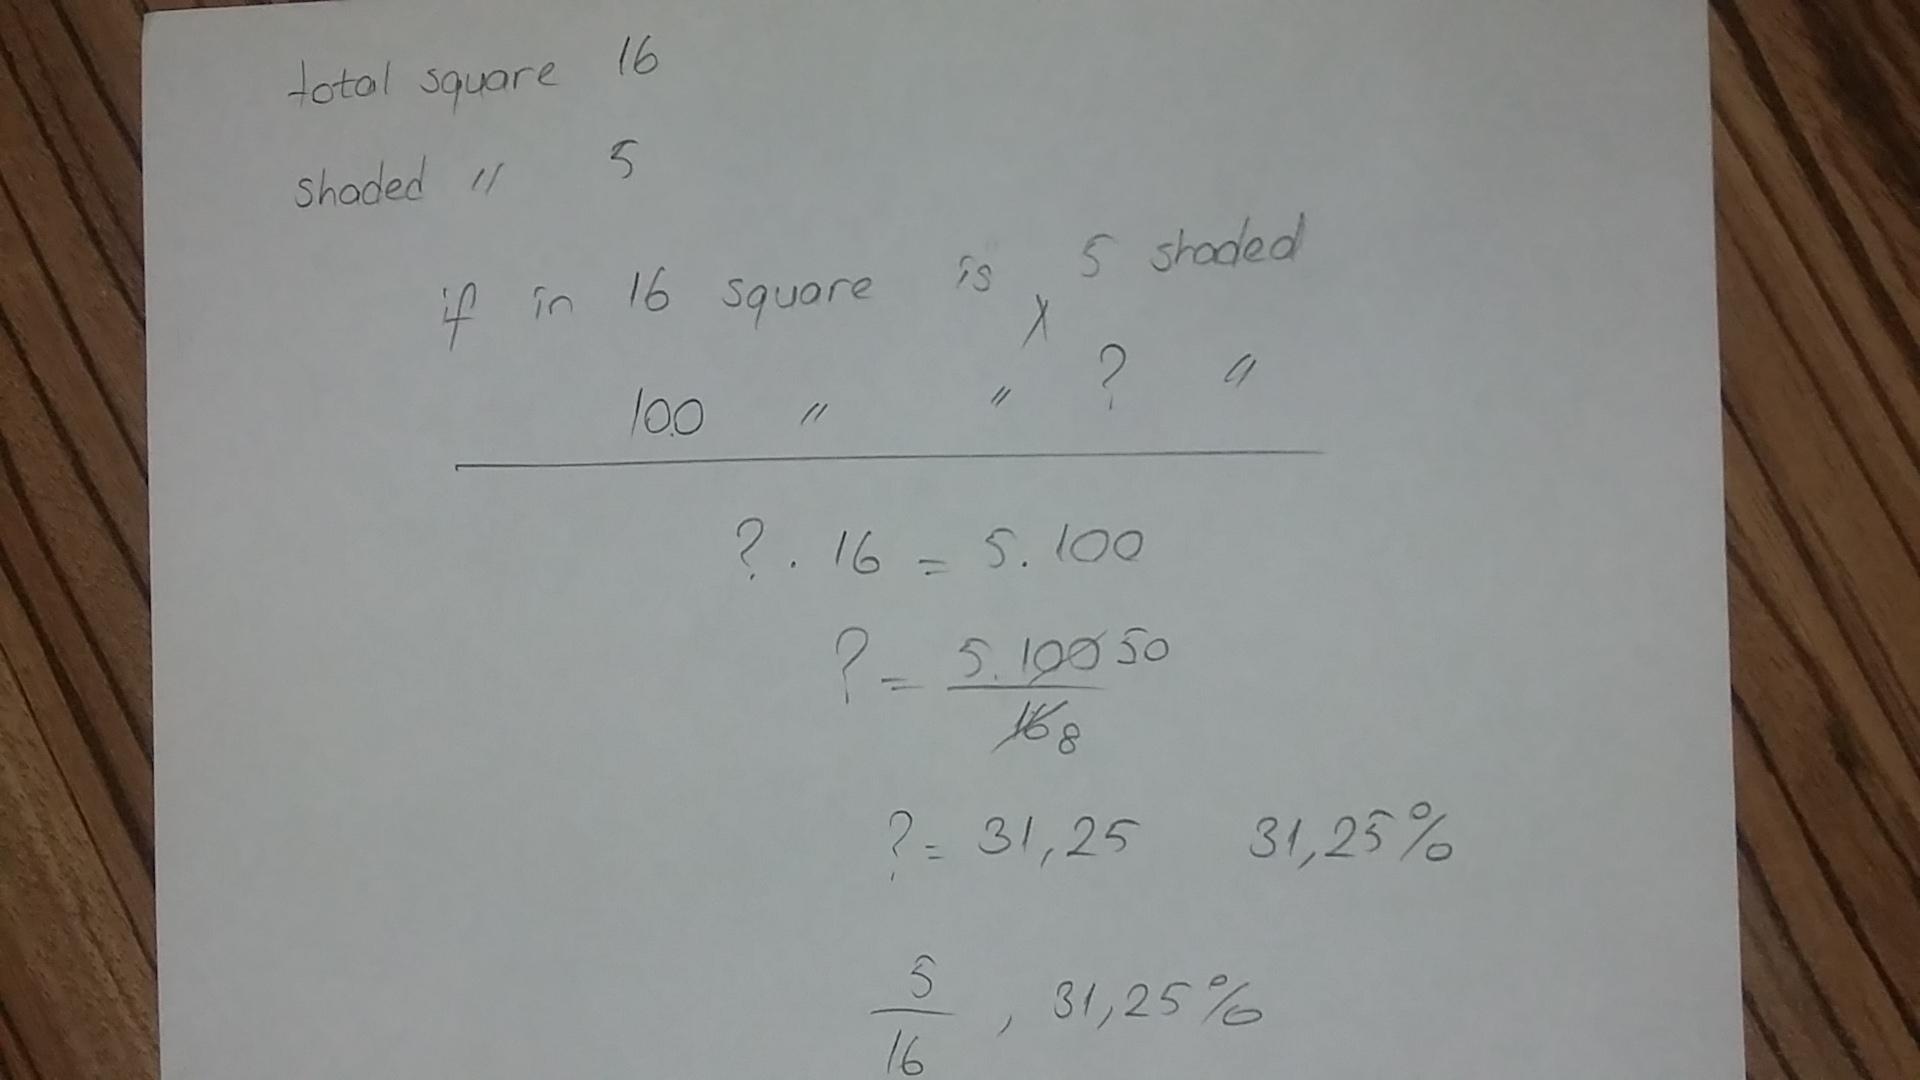 total square 16
shaded " 5
if in 16 square is 5 shaded
X
100 " " ? "
? . 16 = 5.100
? = 5.100 50
16 8
? = 31,25 31,25%
5
, 31,25%
16